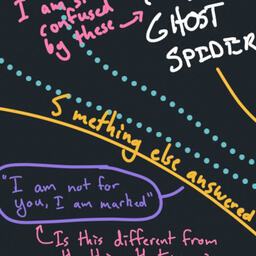 I am so
confused
by these
GHOST
SPIDER
Smething else answered
"I am not for
you, I am marked"
Is this different from